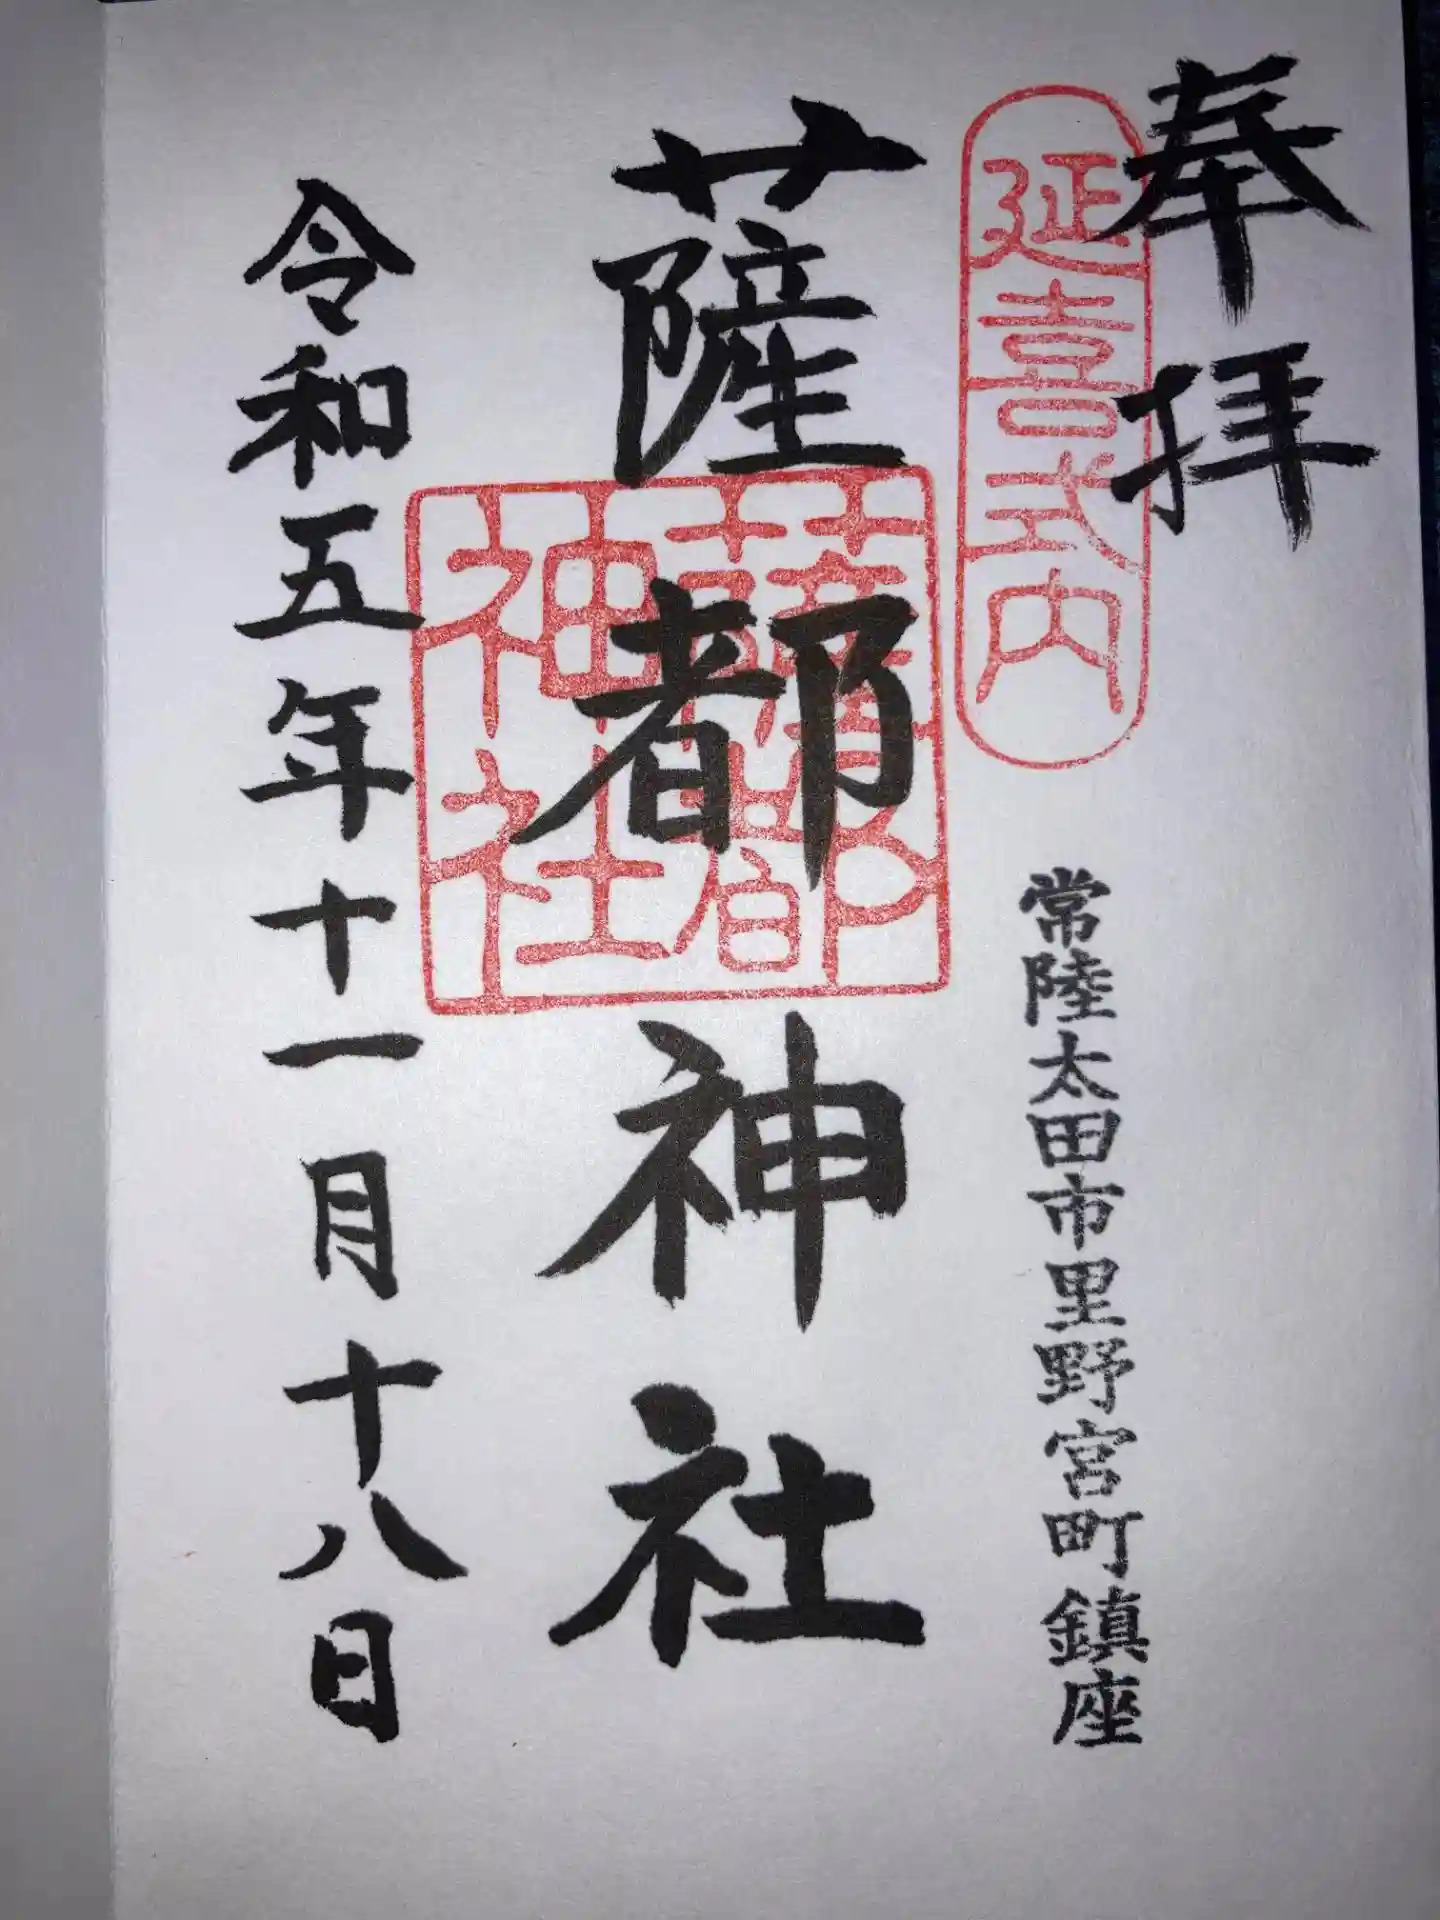 奉拝
延喜式内
常陸太田市里野宮町鎮座
薩都神社
薩都神社
令和五年十一月十八日